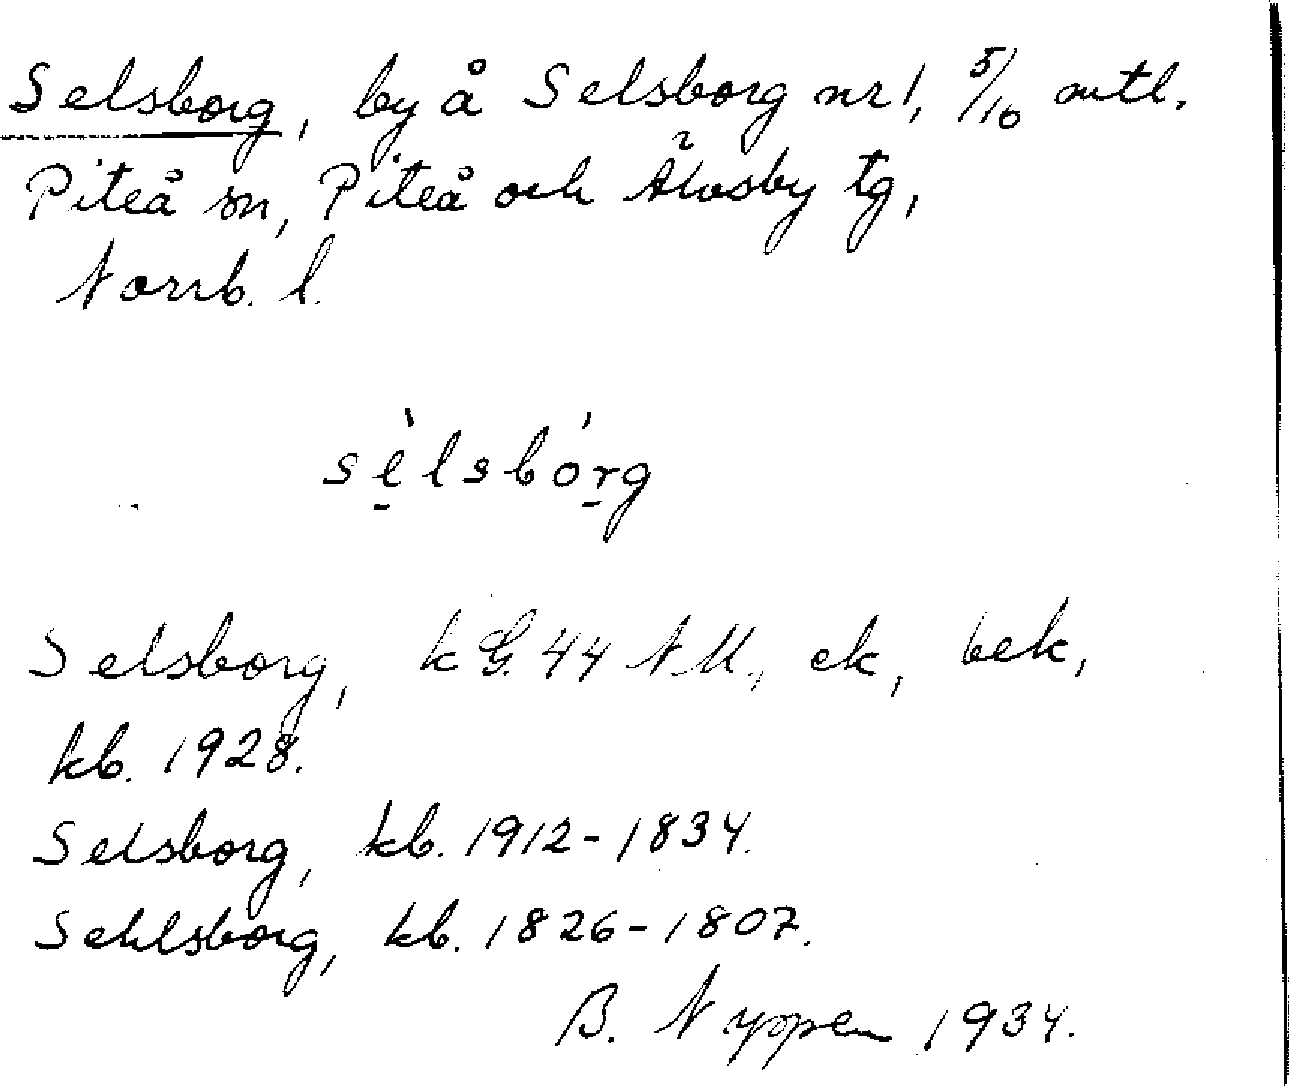 Selsborg, by å Selsborg nr 1, 5/16 mtl.
Piteå sn, Piteå och Älvsby tg,
Norrb. l.
sèlsbórg
Selsborg, k G. 44 N U., ek, bek,
kb. 1928.
Selsborg, kb. 1912-1834.
Sehlsborg, kb. 1826-1807.
B. Nyppen 1934.